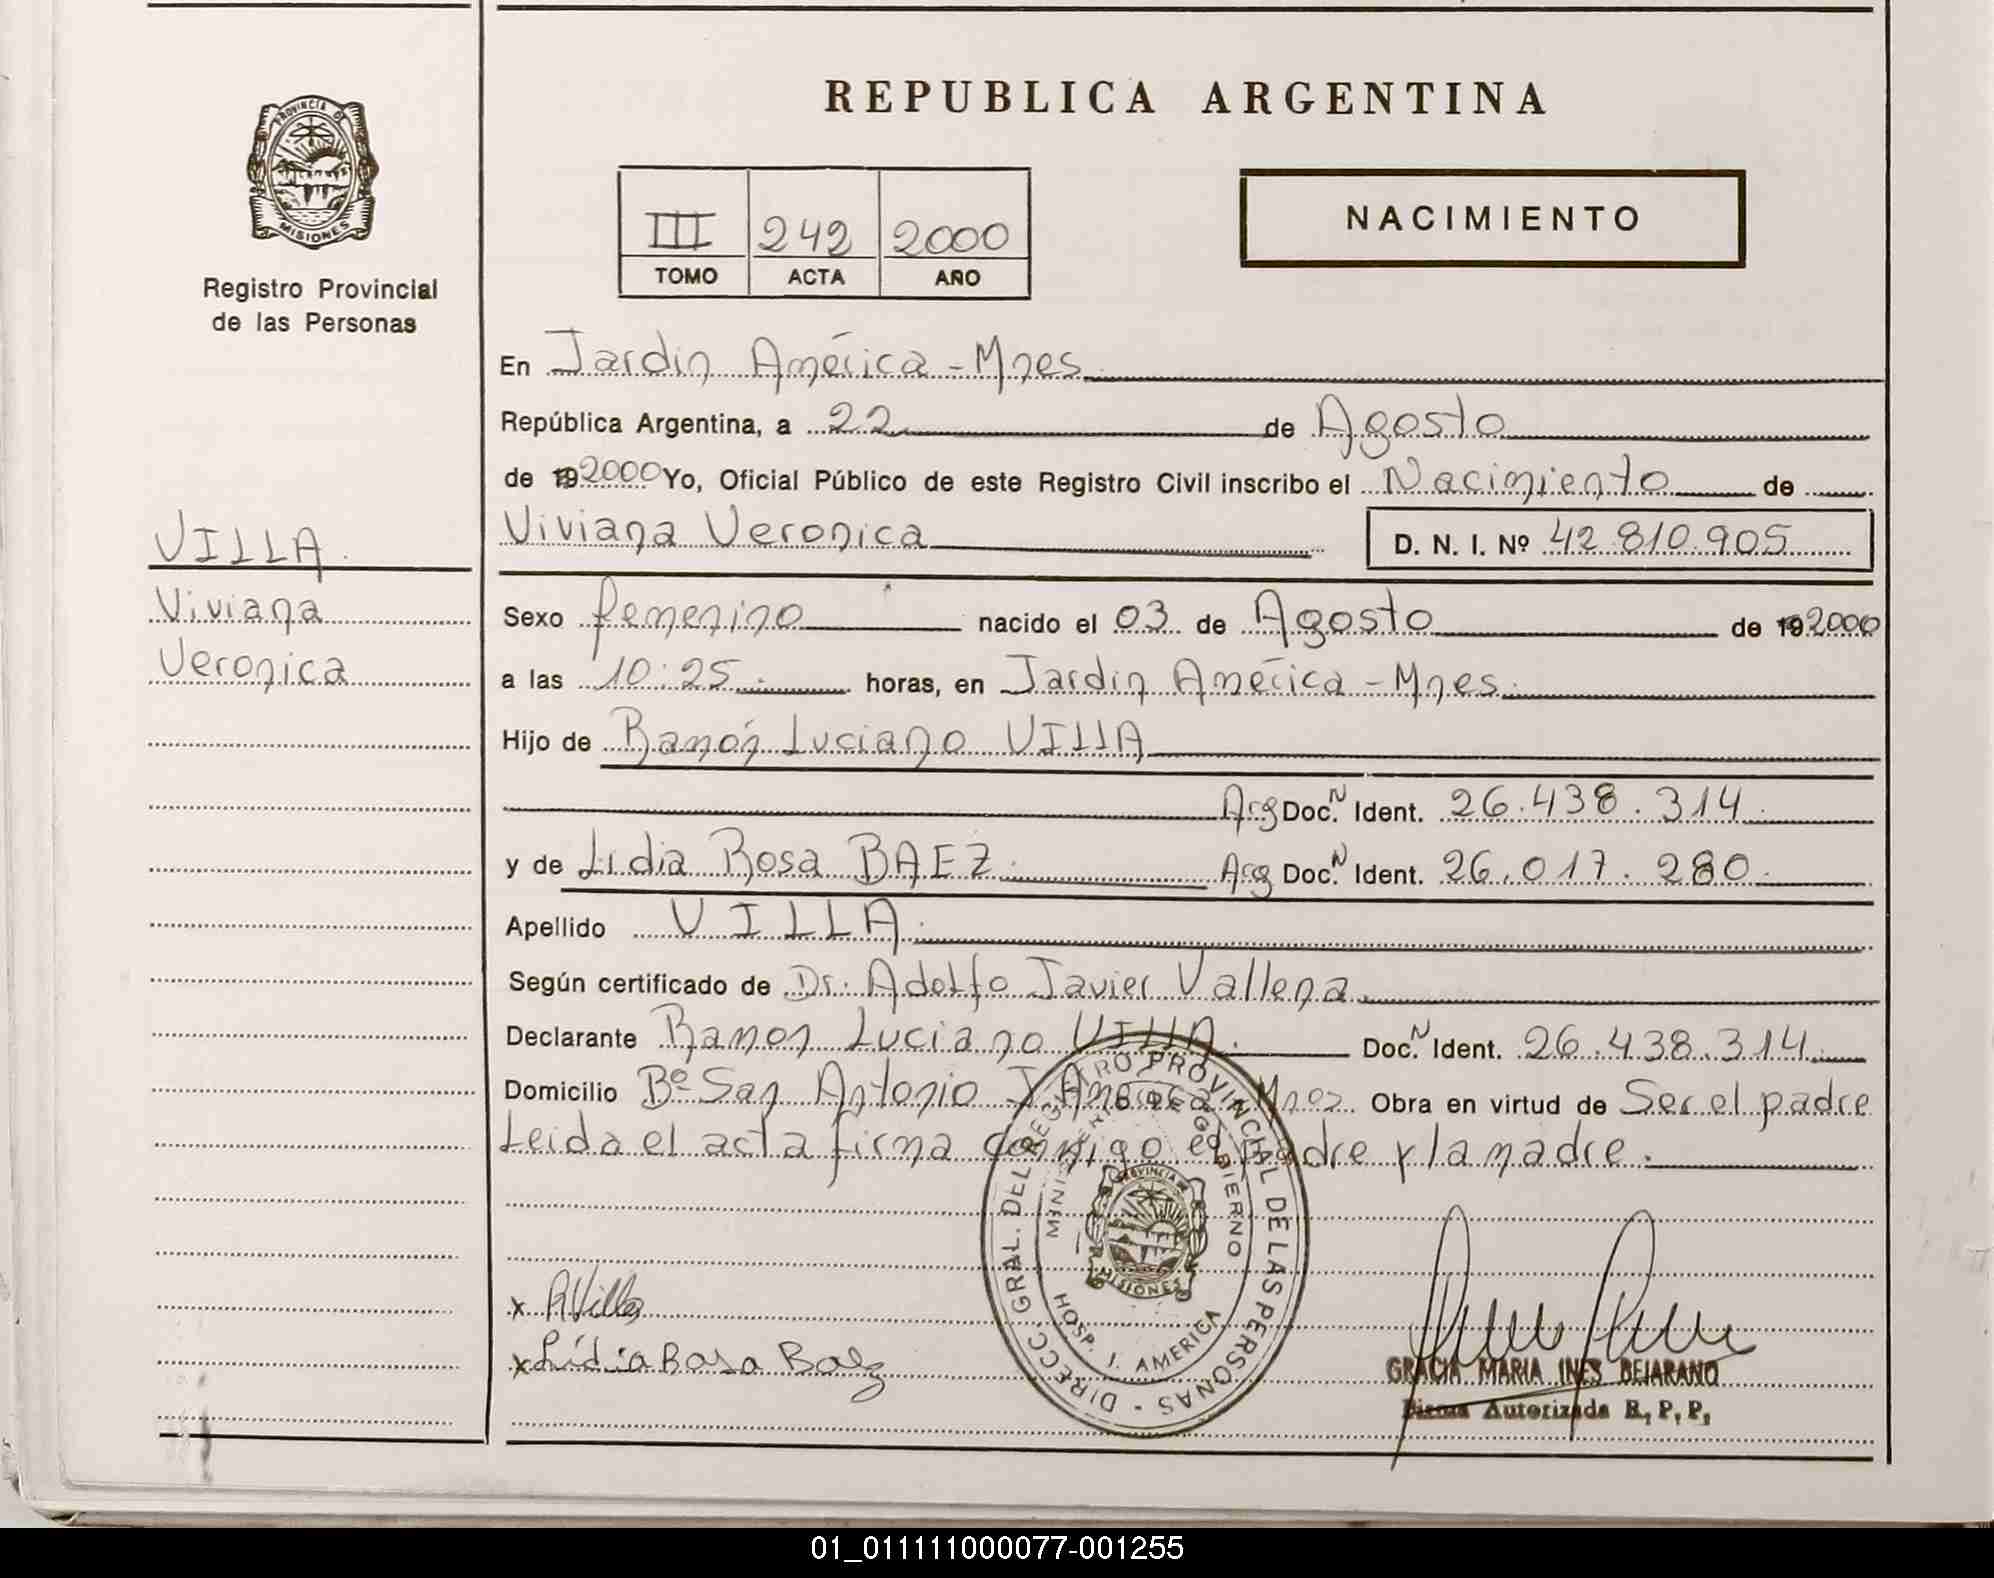 REPUBLICA ARGENTINA
PROVINCIA DE
MISIONES
Registro Provincial
de las Personas
III 242 2000
TOMO ACTA AÑO
NACIMIENTO
En Jardin América - Mnes.
República Argentina, a 22 de Agosto
de 19 2000 Yo, Oficial Público de este Registro Civil inscribo el Nacimiento de
Viviana Veronica D. N. I. Nº 42.810.905
VILLA.
Viviana
Veronica
Sexo femenino nacido el 03 de Agosto de 19 2000
a las 10:25 horas, en Jardin América - Mnes.
Hijo de Ramón Luciano VILLA
Arg Doc. N Ident. 26.438.314.
y de Lidia Rosa BAEZ. Arg Doc. N Ident. 26.017.280.
Apellido VILLA.
Según certificado de Dr. Adolfo Javier Vallena.
Declarante Ramon Luciano VILLA. Doc. N Ident. 26.438.314.
Domicilio Bº San Antonio J. America Mnes. Obra en virtud de Ser el padre
Leida el acta firma conmigo el padre y la madre.
DIRECC. GRAL. DEL REGISTRO PROVINCIAL DE LAS PERSONAS -
MINISTERIO DE GOBIERNO
PROVINCIA
MISIONES
HOSP. J. AMERICA
x RVilla
x Lidia Rosa Baez
GRACIA MARIA INES BEJARANO
Firma Autorizada R. P. P.
01_011111000077-001255